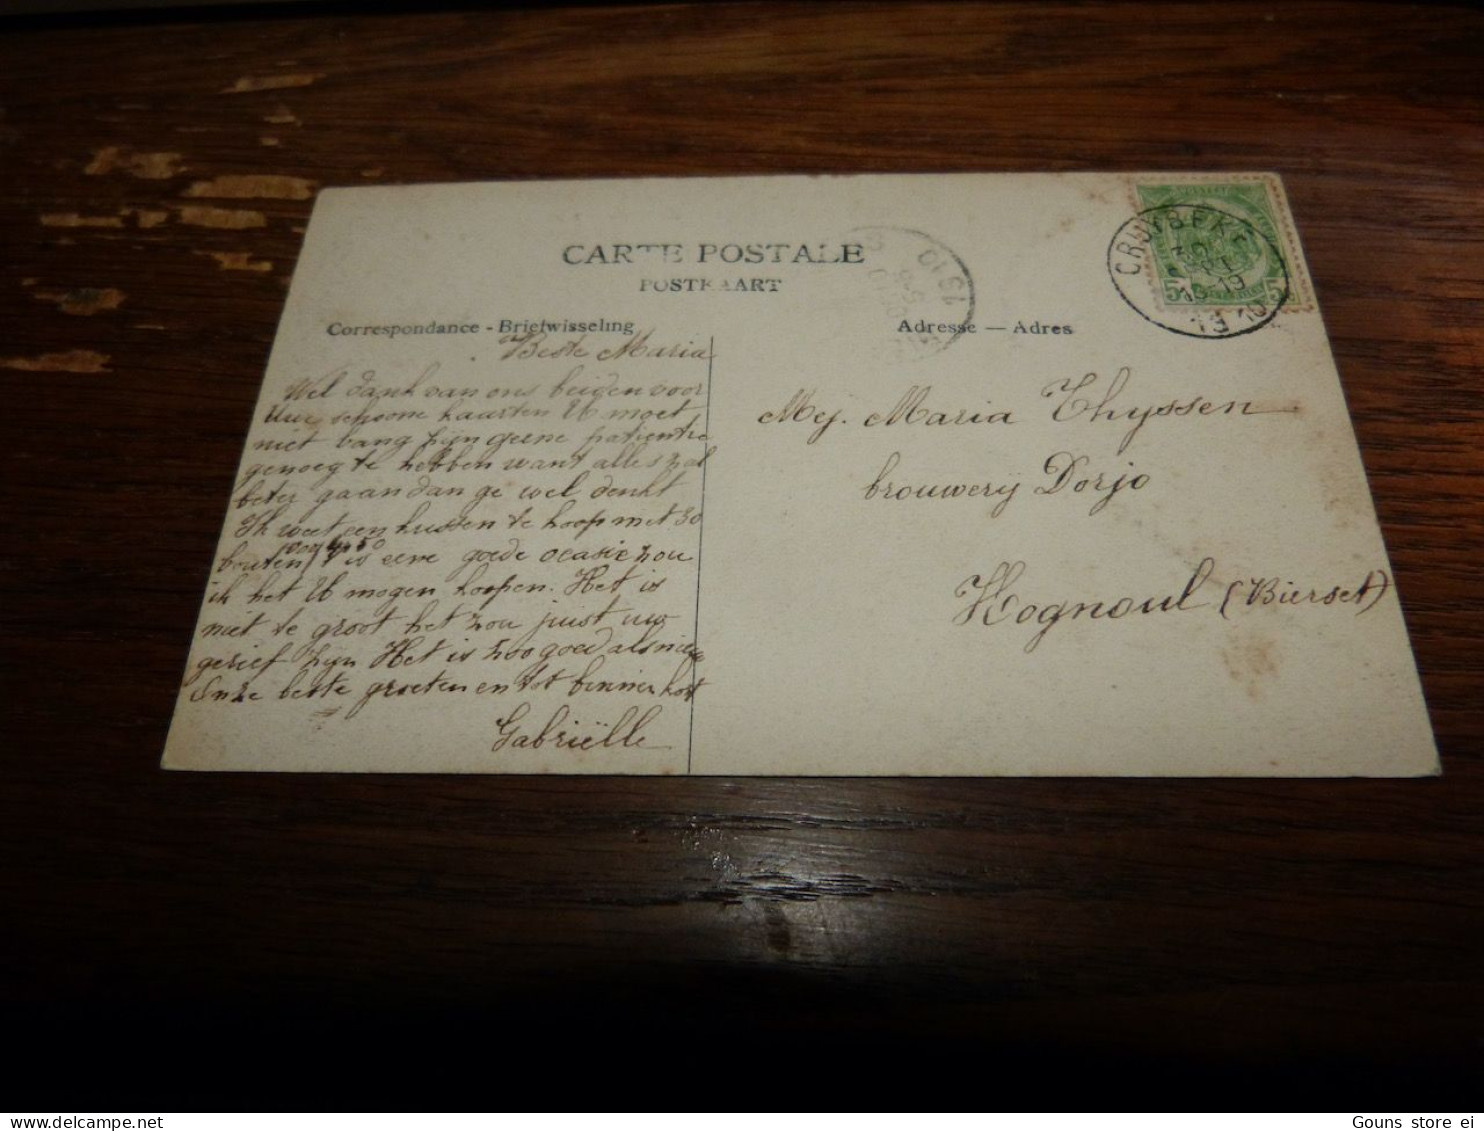 CARTE POSTALE
POSTKAART
Correspondance - Briefwisseling
Adresse — Adres
CRUYBEKE
18-19
1910
5 5
Beste Maria
Wel dank van ons beiden voor
Uur schoone kaarten U moet
niet bang zijn geene patientie
genoeg te hebben want alles zal
beter gaan dan ge wel denkt
Ik weet een hussen te koop met 30
bouten 't is eene goede ocasie zou
ik het U mogen koopen. Het is
niet te groot het zou juist uw
gerief zijn Het is zoo goed als nieuw
Onze beste groeten en tot binnen kort
Gabriëlle
Mej. Maria Thyssen
brouwery Dorjo
Hognoul (Bierset)
Gouns store ei